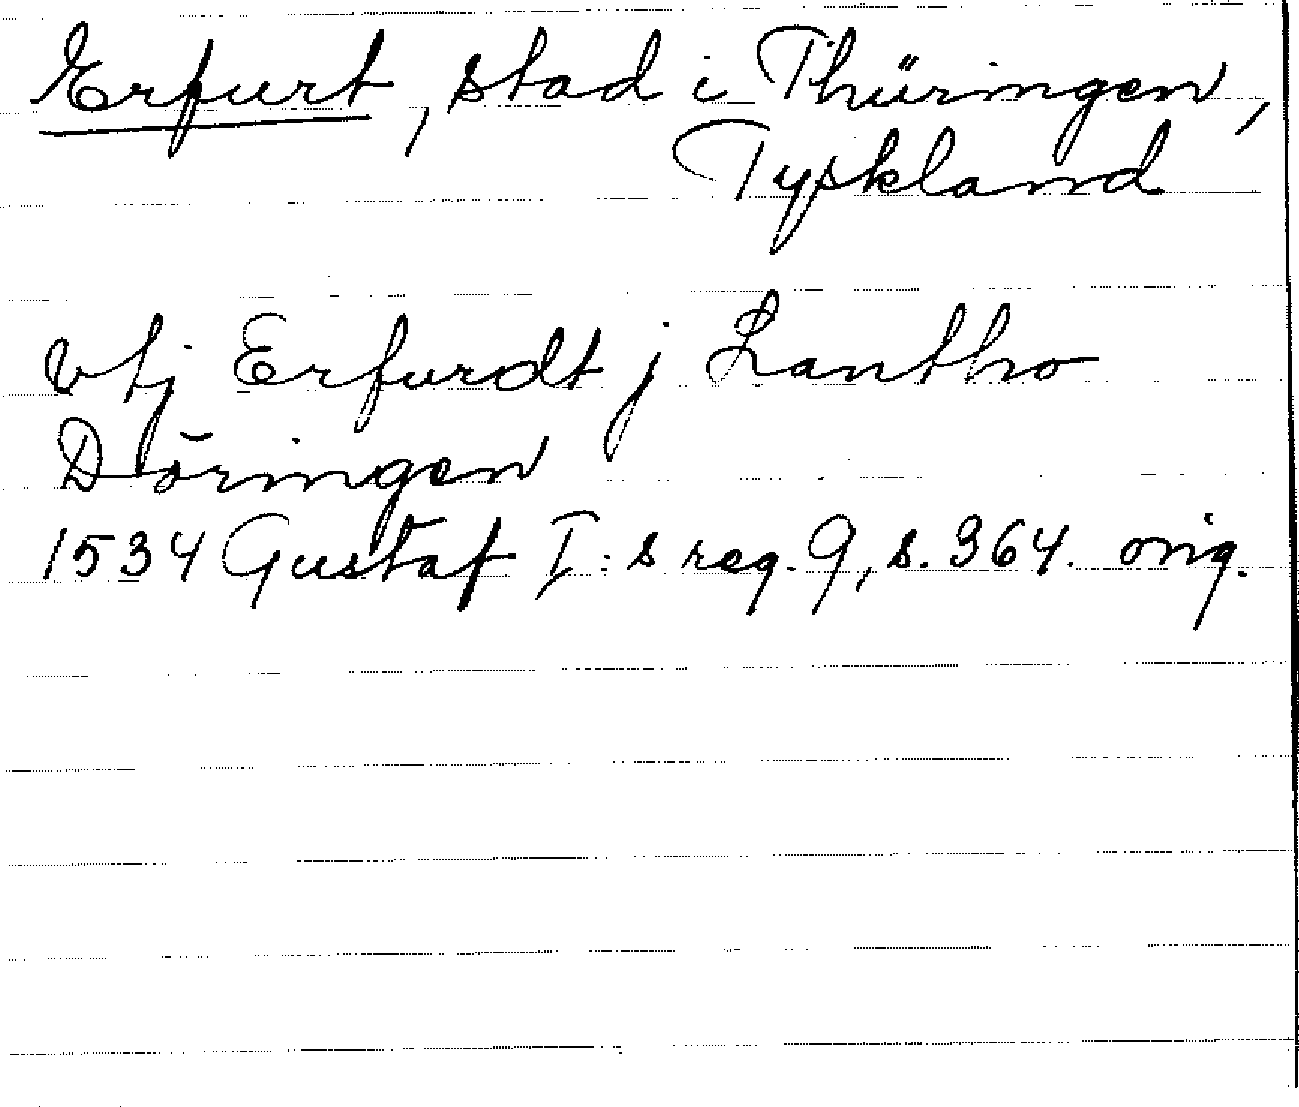 Erfurt, stad i Thüringen,
Tyskland
vtj Erfurdt j Lantho
Döringen
1534 Gustaf I:s reg. 9, s. 364. orig.